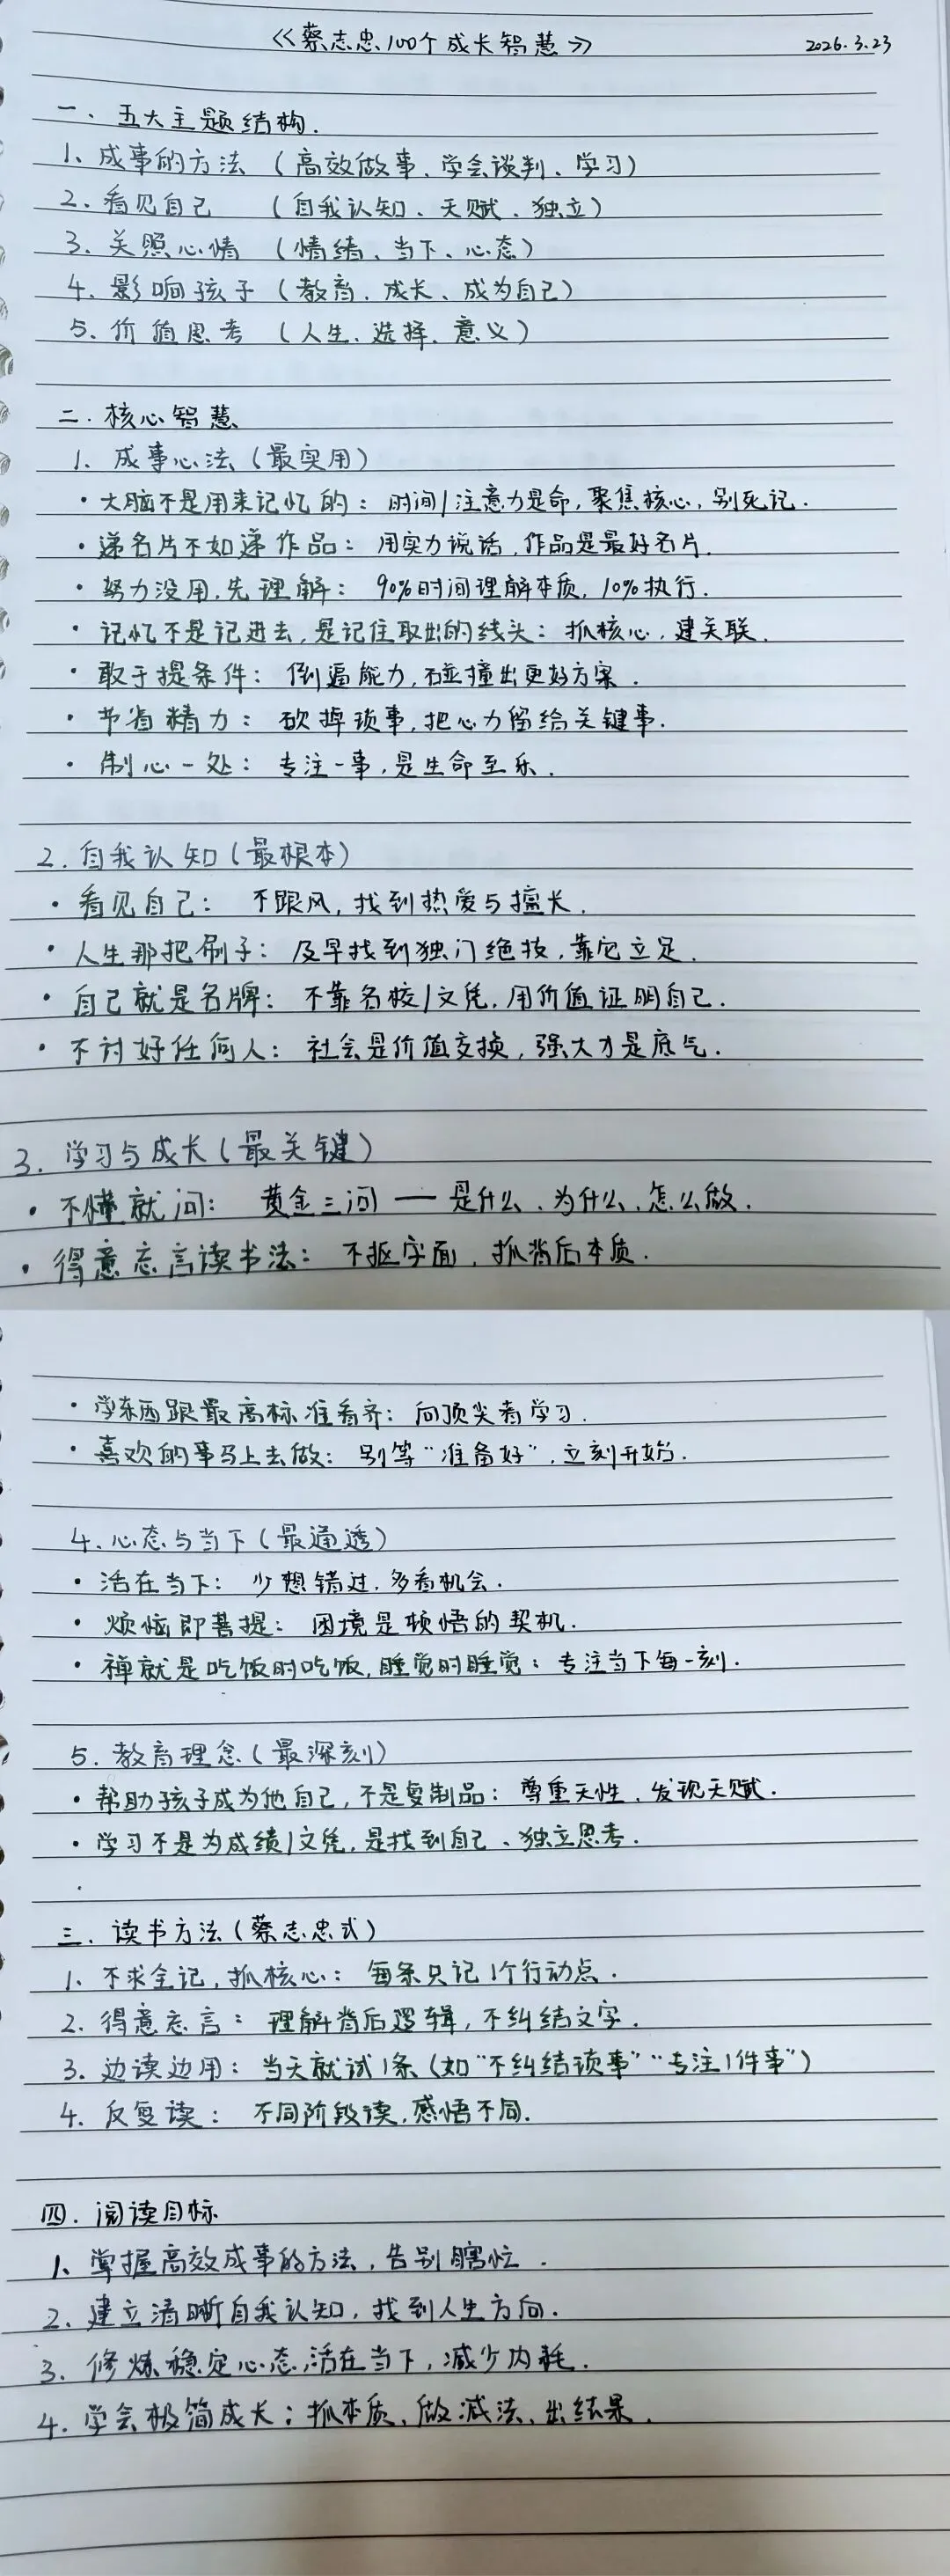 《蔡志忠100个成长智慧》 2026.3.23
一、五大主题结构.
1、成事的方法（高效做事、学会谈判、学习）
2、看见自己 （自我认知、天赋、独立）
3、关照心情（情绪、当下、心态）
4、影响孩子（教育、成长、成为自己）
5、价值思考（人生、选择、意义）
二.核心智慧
1、成事心法（最实用）
·大脑不是用来记忆的：时间/注意力是命,聚焦核心,别死记.
·递名片不如递作品：用实力说话,作品是最好名片.
·努力没用,先理解：90%时间理解本质,10%执行.
·记忆不是记进去,是记住取出的线头：抓核心,建关联.
·敢于提条件：倒逼能力,碰撞出更好方案.
·节省精力：砍掉琐事,把心力留给关键事.
·制心一处：专注一事,是生命至乐.
2.自我认知（最根本）
·看见自己：不跟风,找到热爱与擅长.
·人生那把刷子：及早找到独门绝技,靠它立足.
·自己就是名牌：不靠名校/文凭,用价值证明自己.
·不讨好任何人：社会是价值交换,强大才是底气.
3.学习与成长（最关键）
·不懂就问：黄金三问——是什么、为什么、怎么做.
·得意忘言读书法：不抠字面,抓背后本质.
·学东西跟最高标准看齐：向顶尖者学习.
·喜欢的事马上去做：别等“准备好”,立刻开始.
4、心态与当下（最通透）
·活在当下：少想错过,多看机会.
·烦恼即菩提：困境是顿悟的契机.
·禅就是吃饭时吃饭,睡觉时睡觉：专注当下每一刻.
5.教育理念（最深刻）
·帮助孩子成为他自己,不是复制品：尊重天性、发现天赋.
·学习不是为成绩/文凭,是找到自己、独立思考.
三、读书方法（蔡志忠式）
1、不求全记,抓核心：每条只记1个行动点.
2.得意忘言：理解背后逻辑,不纠结文字.
3.边读边用：当天就试1条（如“不纠结琐事”“专注1件事”）
4.反复读：不同阶段读,感悟不同.
四.阅读目标
1、掌握高效成事的方法,告别瞎忙.
2、建立清晰自我认知,找到人生方向.
3、修炼稳定心态,活在当下,减少内耗.
4.学会极简成长：抓本质、做减法、出结果.